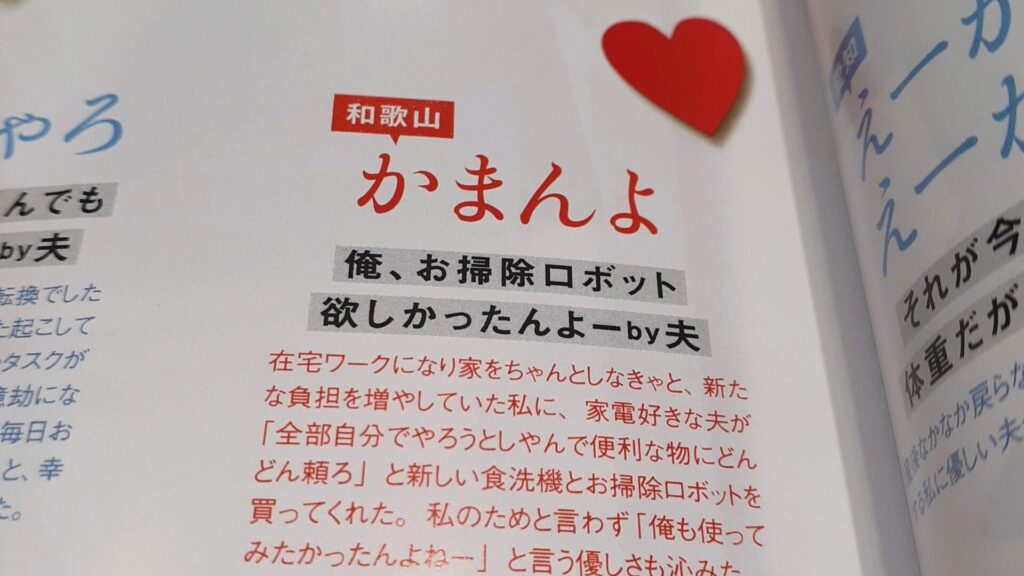 和歌山
かまんよ
俺、お掃除ロボット
欲しかったんよーby夫
在宅ワークになり家をちゃんとしなきゃと、新た
な負担を増やしていた私に、家電好きな夫が
「全部自分でやろうとしやんで便利な物にどん
どん頼ろ」と新しい食洗機とお掃除ロボットを
買ってくれた。私のためと言わず「俺も使って
みたかったんよねー」と言う優しさも沁みた
やろ
んでも
by夫
転換でした
起こして
タスクが
億劫にな
毎日お
と、幸
た。
えーか
えーわ
それが今
体重だが
産後なかなか戻らな
する私に優しい夫